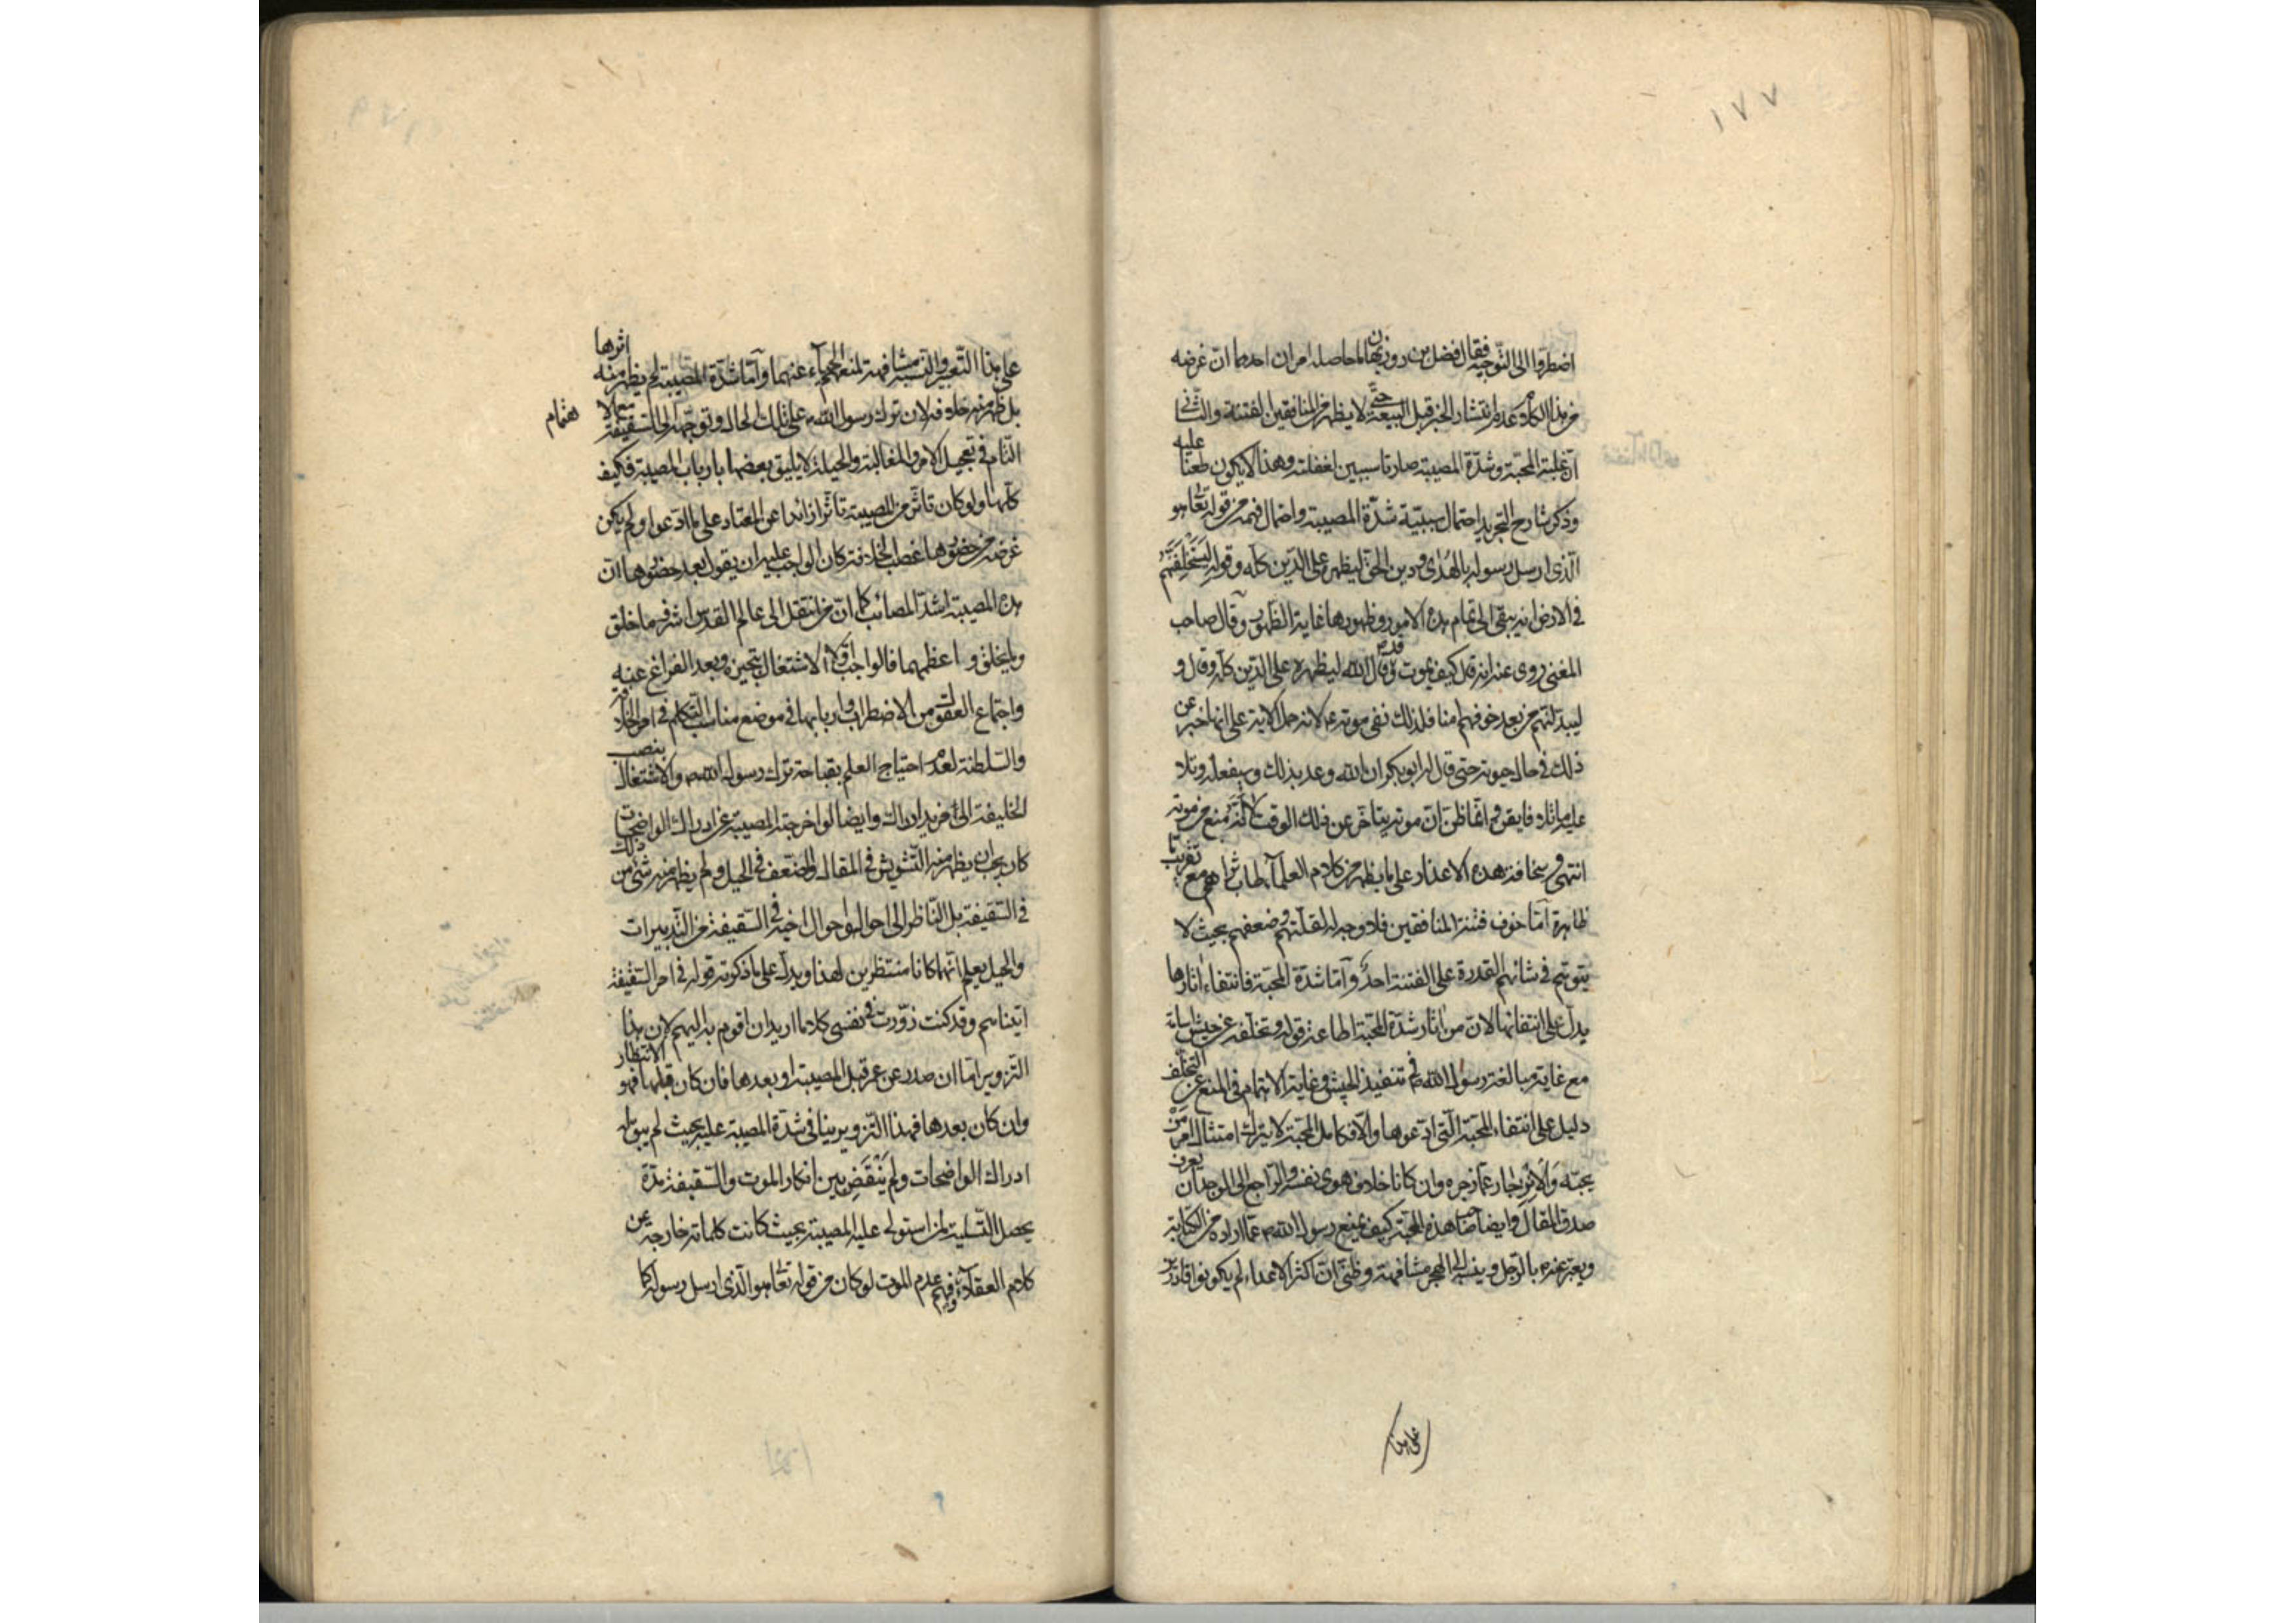 ١٧٧
اضطروا الى التوجيه فقال فضل بن روزبهان ما حاصله امران احدهما ان غرضه
من هذا الكلام عدم انتشار الخبر قبل البيعة حتى لا يظهر من المنافقين لفتنة والثاني
ان غلبة المحبة وشدة المصيبة صارتا سببين لغفلته وهذا لا يكون طعنا عليه
وذكر شارح التجريد احتمال سببية شدة المصيبة واحتمال فهمه من قوله تعالى هو
الذي ارسل رسوله بالهدى ودين الحق ليظهره على الدين كله وقوله ليستخلفنهم
في الارض انه يبقى الى تمام هذه الامور وظهورها غاية الظهور وقال صاحب
المغني روى عنه انه قال كيف يموت وقد قال الله ليظهره على الدين كله وقال و
ليبدلنهم من بعد خوفهم امنا فلذلك نفى موته ع لانه حمل الاية على انها خبر عن
ذلك في حال حيوته حتى قال له ابو بكر ان الله وعد بذلك وسيفعله وتلا
عليه ما تلا فايقن وانما ظن ان موته يتاخر عن ذلك الوقت لا انه منع من موته
انتهى وسخافة هذه الاعذار على ما يظهر من كلام العلماء طاب ثراهم مع تقريب
ظاهرة اما خوف فتنة المنافقين فلا وجه له لقلتهم وضعفهم بحيث لا
يتوهم في شانهم القدرة على الفتنة احد واما شدة المحبة فانتفاء اثارها
يدل على انتفائها لان من اثار شدة المحبة اطاعة قوله وتخلفه عن جيش اسامة
مع غاية مبالغة رسول الله ص في تنفيذ الجيش وغاية الاهتمام في المنع عن التخلف
دليل على انتفاء المحبة التي ادعوها والا فكامل المحبة لا يترك امتثال امر من
يحبه والانزجار عما زجره وان كانا خلاف هوى نفسه والراجع الى الوجدان يعرف
صدق المقال وايضا صاحب هذه المحبة كيف يمنع رسول الله ص عما اراده من الكتابة
ويعبر عنه بالرجل وينسبه الى الهجر مشافهة وظني ان اكثر الاعداء لم يكونوا قادرين
على هذا
على هذا التعبير والنسبة مشافهة لمنع الحياء عنهما واما شدة المصيبة لم يظهر منه اثرها
بل ظهر منه خلافه لان ترك رسول الله ص على تلك الحال وتوجهه الى السقيفة مع الا
هتمام
التام في تعجيل الامر والمغالبة والحيلة لا يليق بعضها بارباب المصيبة فكيف
كلها ولو كان تاثر من المصيبة تاثرا زائدا عن المعتاد على ما ادعوا ولم يكن
غرضه من حضورها غصب الخلافة كان الواجب عليه ان يقول بعد حضورها ان
هذه المصيبة اشد المصائب كما ان من انتقل الى عالم القدس اشرف ما خلق
وما يخلق و اعظمهما فالواجب اولا الاشتغال بتجهيزه وبعد الفراغ عنه
واجتماع العقول من الاضطراب واربابها في موضع مناسب التكلم في امر الخلافة
والسلطنة لعدم احتياج العلم بقباحة ترك رسول الله ص والاشتغال بنصب
الخليفة الى مزيد ادراك وايضا لو اخرجته المصيبة عن ادراك الواضحات
كان يجب ان يظهر منه التشويش في المقال والضعف في الحيل ولم يظهر منه شئ من ذلك
في السقيفة بل الناظر الى احواله واحوال اخيه في السقيفة من التدبيرات
والحيل يعلم انهما كانا منتظرين لهذا ويدل على ما ذكرته قوله في امر السقيفة
اتيناهم وقد كنت زورت في نفسي كلاما اريد ان اقوم به اليهم لان هذا
التزوير اما ان صدر عن عمر قبل المصيبة او بعدها فان كان قبلها فهو الانتظار
وان كان بعدها فهذا التزوير ينافي شدة المصيبة عليه بحيث لم يبق له
ادراك الواضحات ولم ينقض بين انكار الموت والسقيفة مدة
يحصل التسلية لمن استولى عليه المصيبة بحيث كانت كلماته خارجة عن
كلام العقلاء وفهم عدم الموت لو كان من قوله تعالى هو الذي ارسل رسوله كما